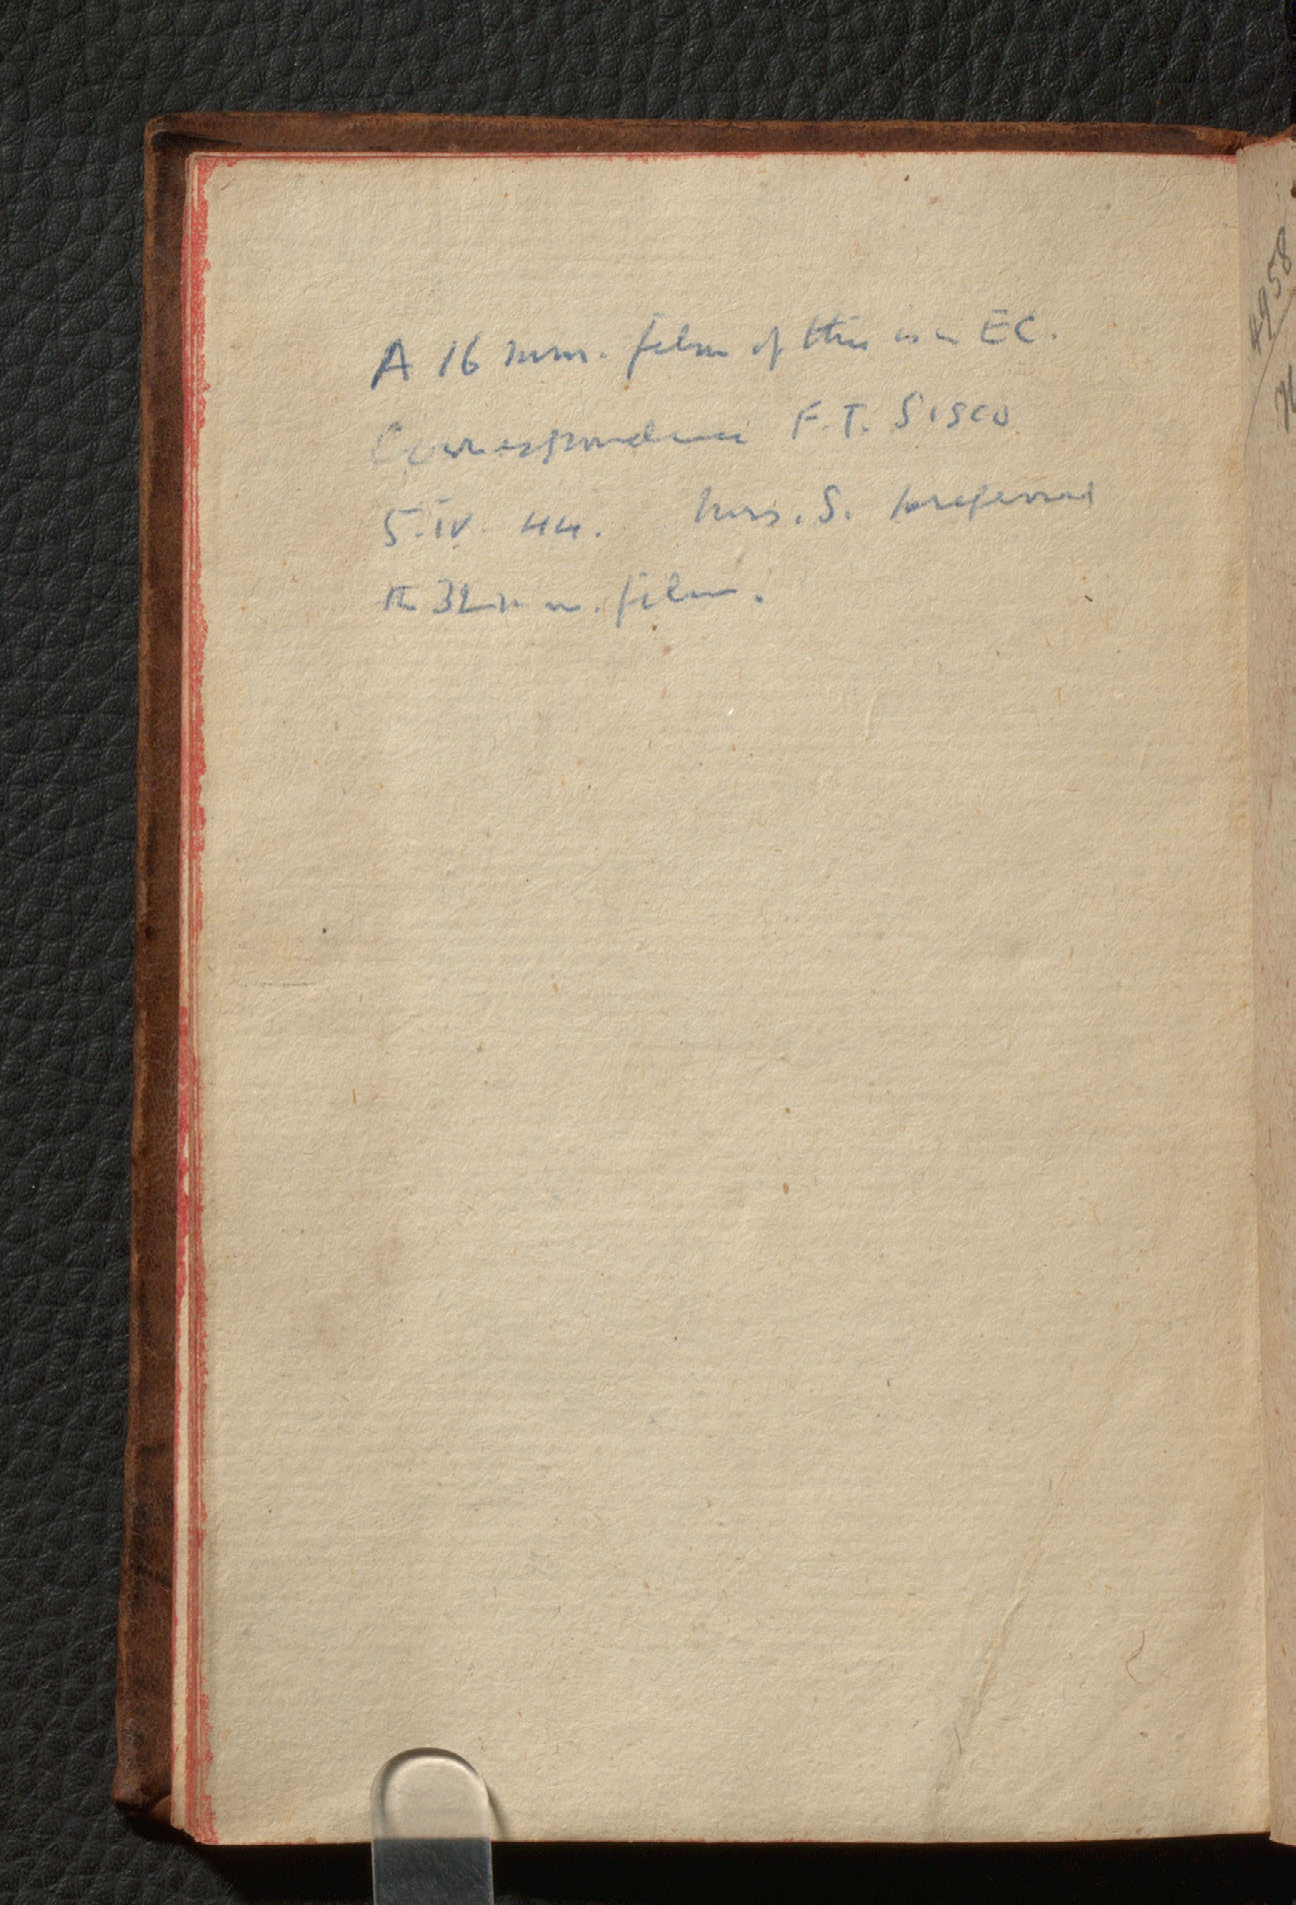 A 16 mm. film of this is in EC.
Correspondence F.T. SISCO
5.IV.44. Mrs. S. preferred
the 32 m m. film.
4958